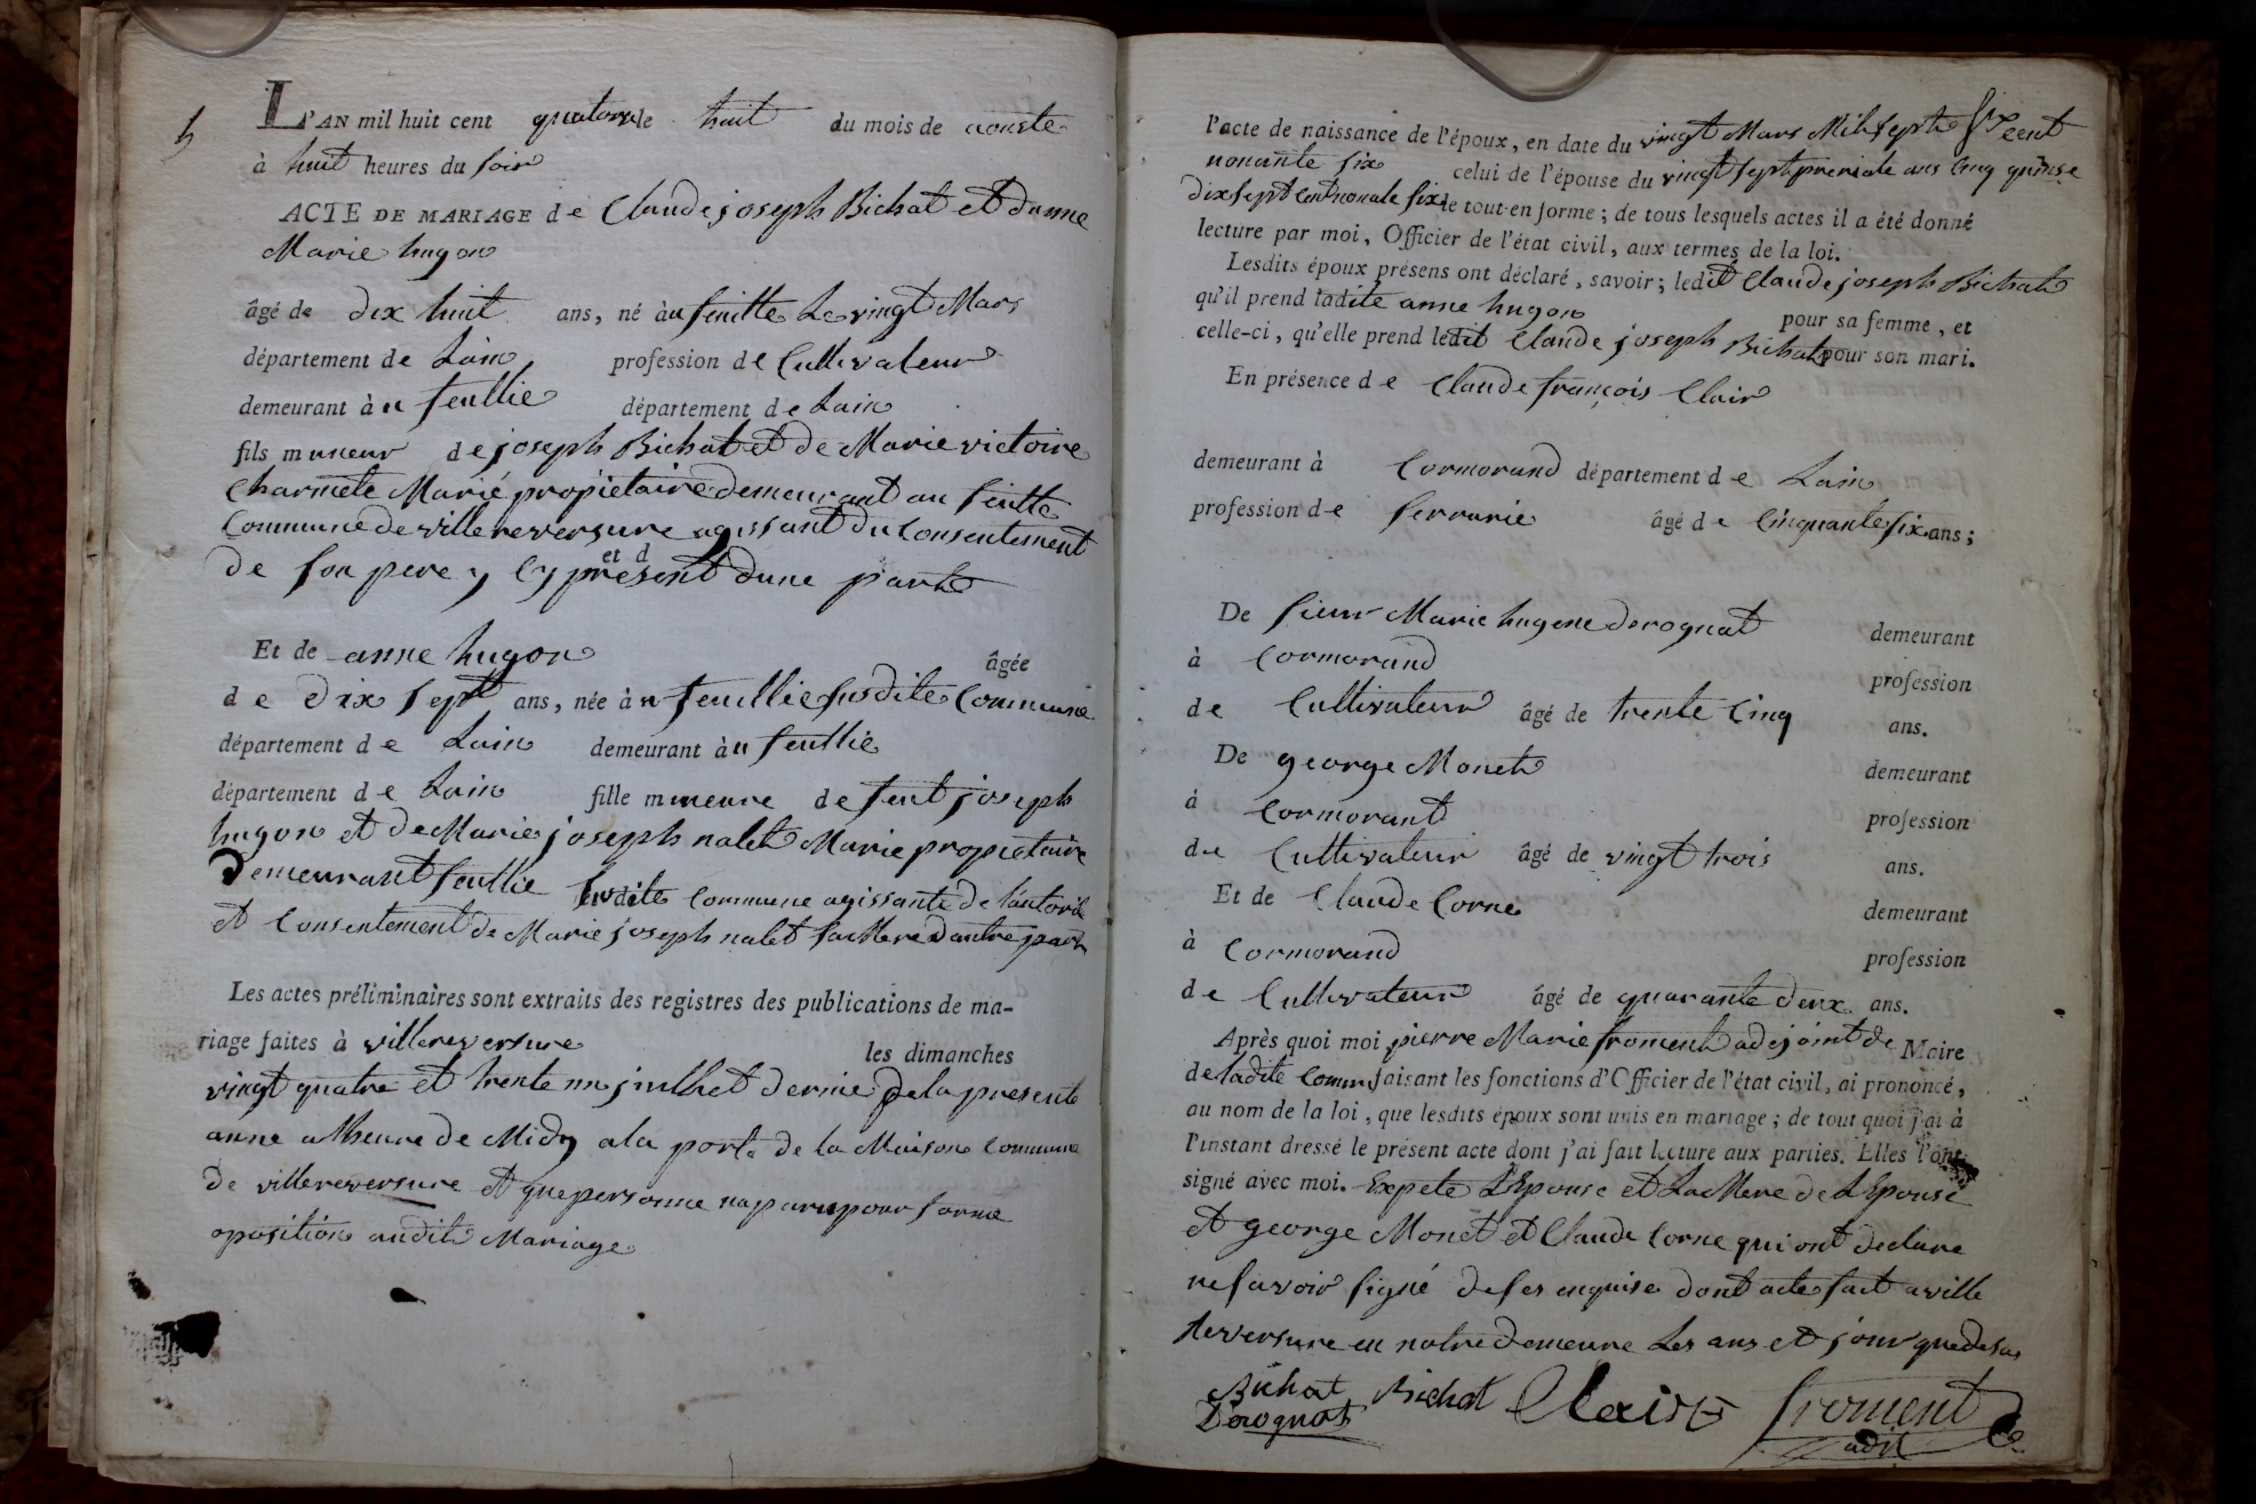 5
L'AN mil huit cent quatorze le huit du mois de aouste
à huit heures du soir
ACTE DE MARIAGE de Claude joseph Bichat et danne
Marie hugon
âgé de dix huit ans, né àu feuille Le vingt Mars
département de Lain profession de Cultivateur
demeurant àu feullie département de Lain
fils mineur de joseph Bichat et de Marie victoire
Charmete Marié propietaire demeurant au feulle
Commune de villereversure agissant du Consentement
et d
de son pere y Cy present dune part
Et de anne hugon âgée
de dix sept ans, née àu feullie susdite Commune
département de Lain demeurant àu feullie
département de Lain fille mineure de feut joseph
hugon et de Marie joseph nalet Marie propietaire
Demeurant feullie susdite Commune agissante de l'autorité
et Consentement de Marie joseph nalet sa Mere dautre part
Les actes préliminaires sont extraits des registres des publications de ma-
riage faites à villereversure les dimanches
vingt quatre et trente un juillet dernie de la presente
anne a lheure de Midy a la porte de la Maison Commune
de villereversure et que personne na paru pour forme
oposition audit Mariage
l'acte de naissance de l'époux, en date du vingt Mars Mil sept cent
nonante six celui de l'épouse du vingt sept ans Cinq
dix sept Cent nonante six le tout en forme; de tous lesquels actes il a été donné
lecture par moi, Officier de l'état civil, aux termes de la loi.
Lesdits époux présens ont déclaré, savoir; ledit Claude joseph Bichat
qu'il prend ladite anne hugon pour sa femme, et
celle-ci, qu'elle prend ledit Claude joseph Bichat pour son mari.
En présence de Claude françois Clair
demeurant à Cormorand département de Lain
profession de serrurie âgé de Cinquante six ans;
De sieur Marie hugene derognat demeurant
à Cormorand profession
de Cultivateur âgé de trente Cinq ans.
De george Monet demeurant
à Cormorant profession
de Cultivateur âgé de vingt trois ans.
Et de Claude Corne demeurant
à Cormorand profession
de Cultivateur âgé de quarante deux ans.
Après quoi moi pierre Marie froment adejoint de Maire
de ladite Comm faisant les fonctions d'Officier de l'état civil, ai prononcé,
au nom de la loi, que lesdits époux sont unis en mariage; de tout quoi j'ai à
l'instant dressé le présent acte dont j'ai fait lecture aux parties. Elles l'ont
signé avec moi. Expete L'Epouse et La Mere de L'Epouse
et george Monet et Claude Corne qui ont declare
ne savoir signé de ses enquise dont acte fait a ville
Reversure en notre demeure Les ans et jour que desus
Bichat Bichat Clair froment
Derognat adjt